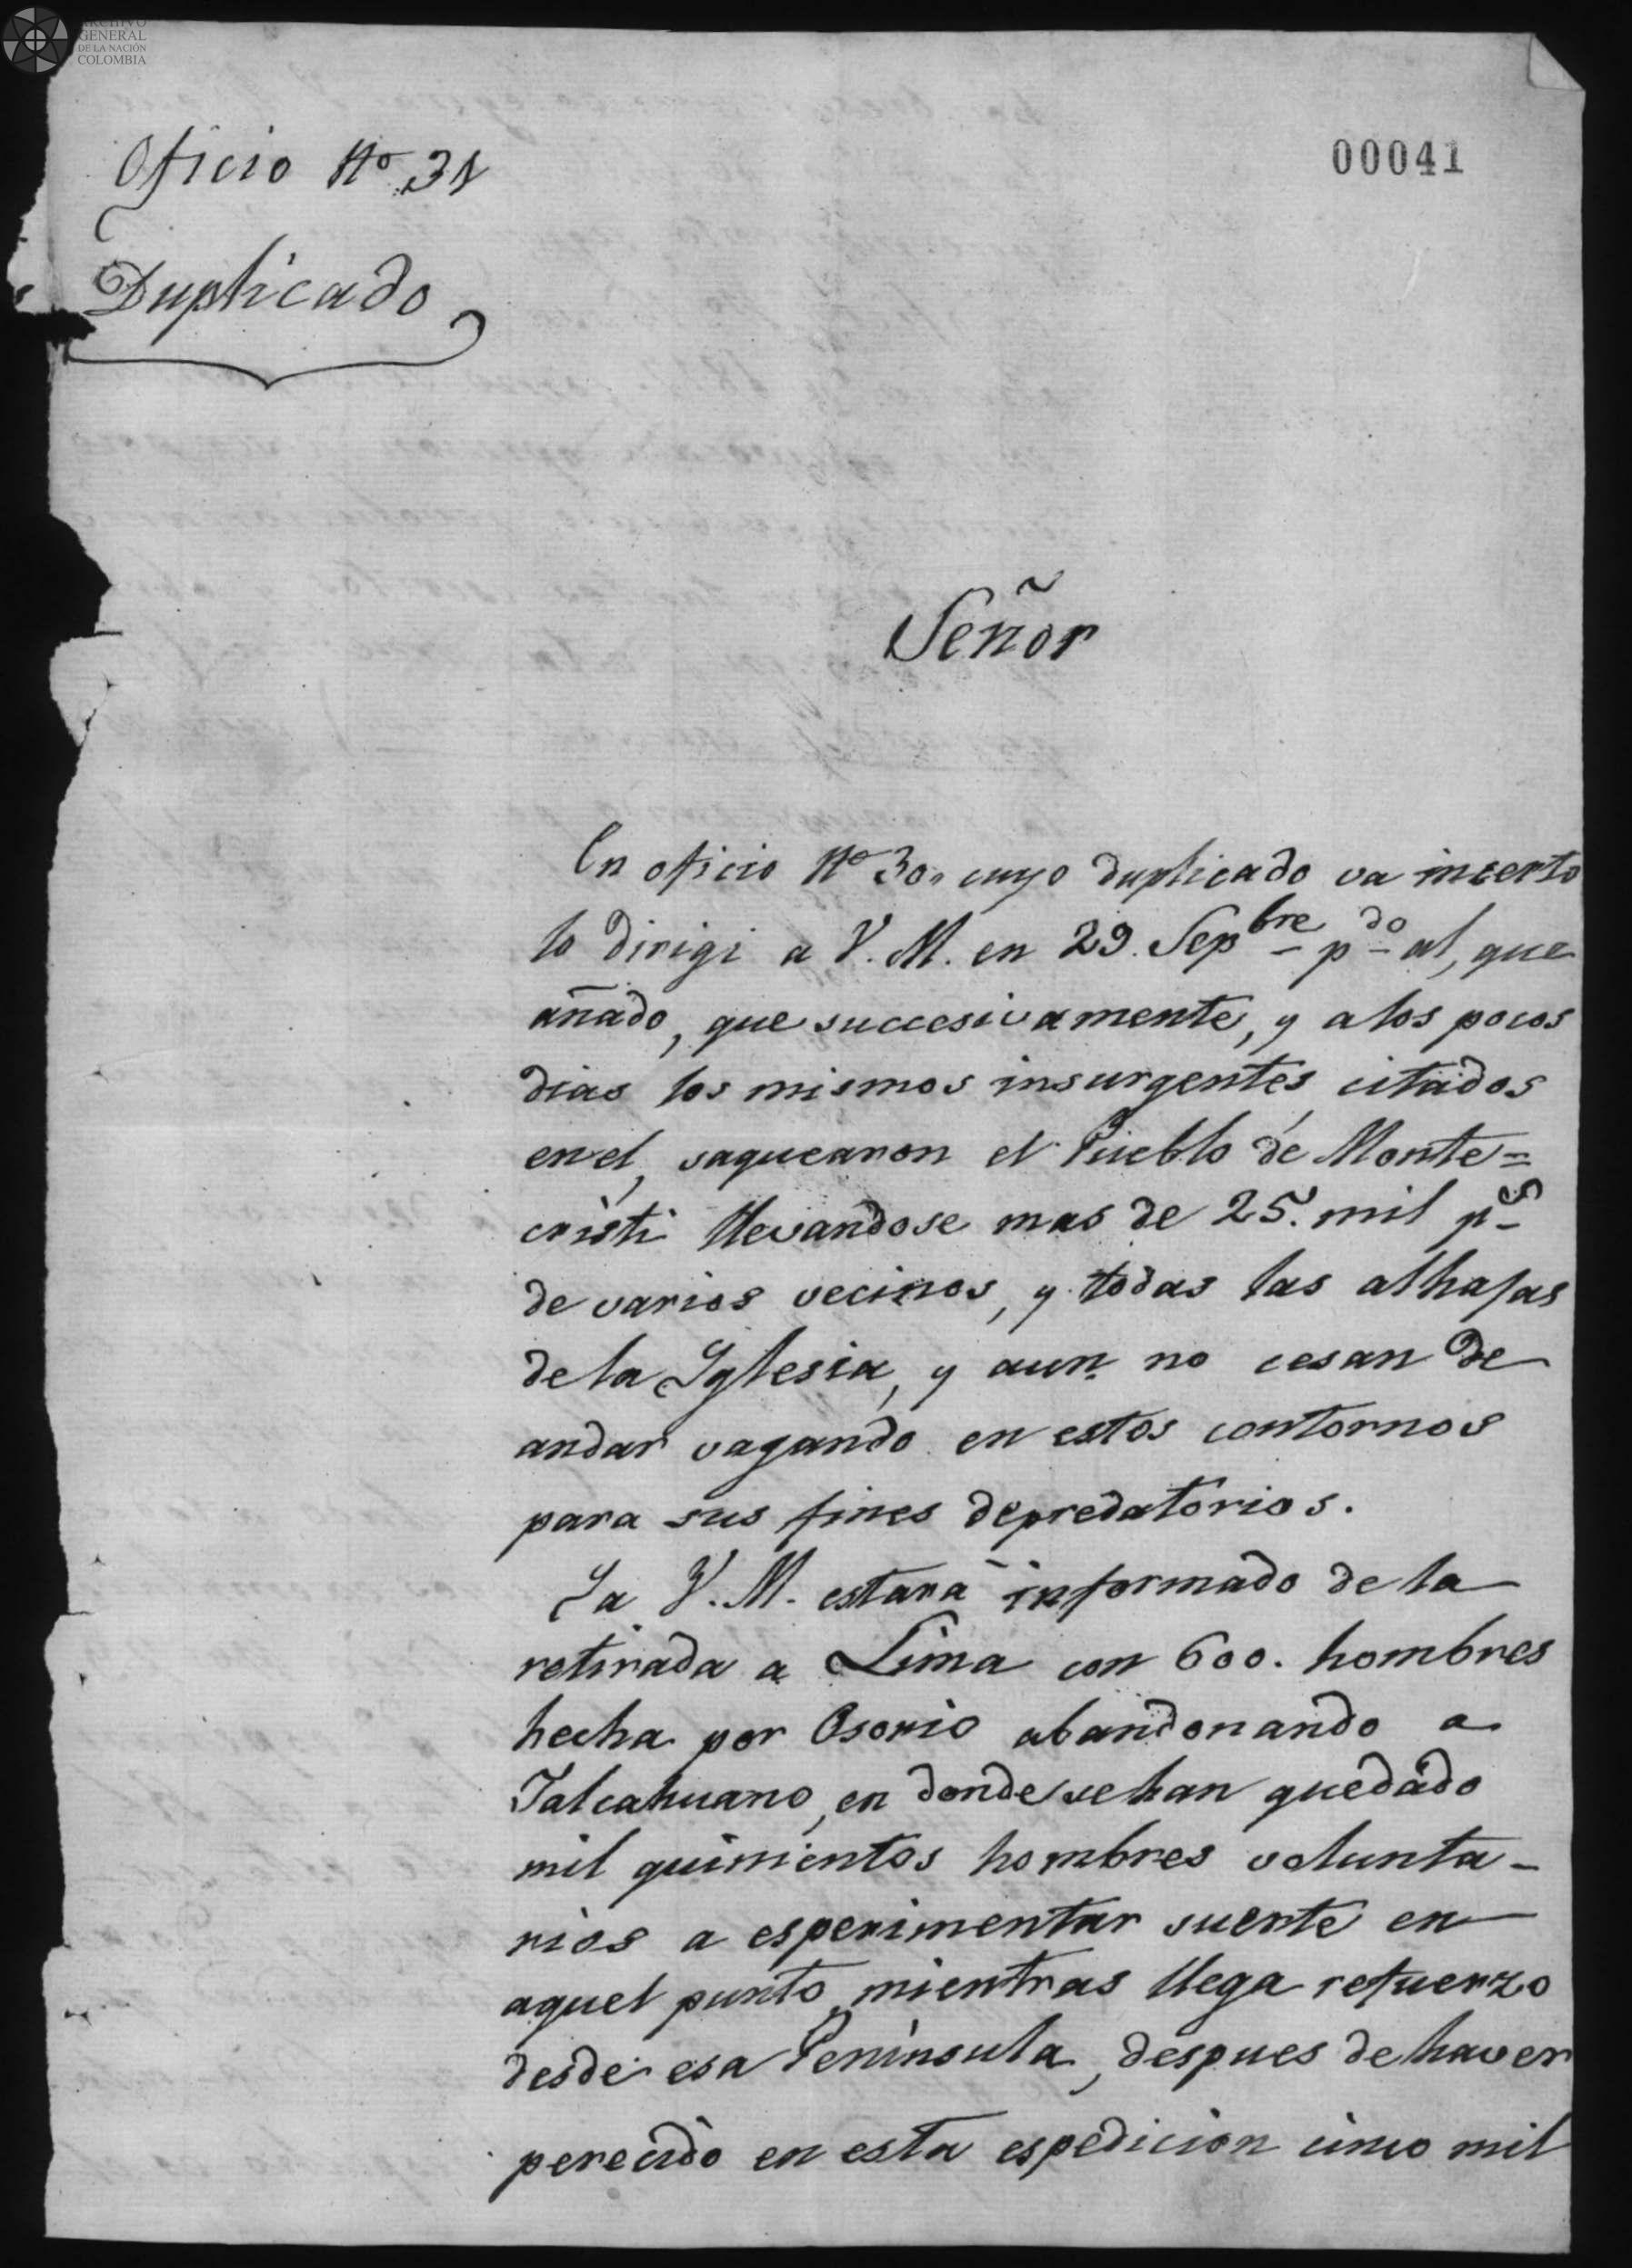 ARCHIVO
GENERAL
DE LA NACIÓN
COLOMBIA
Oficio Nº 31
00041
Duplicado
Señor
En oficio Nº 30. cuyo duplicado va incerto
lo dirigi a V. M. en 29. Sepbre pdo al, que
añado, que succesivamente, y a los pocos
dias los mismos insurgentes citados
en el, saquearon el Pueblo de Monte=
cristi llevandose mas de 25. mil ps
de varios vecinos, y todas las alhajas
de la Yglesia, y aun no cesan de
andar vagando en estos contornos
para sus fines depredatorios.
Ya V. M. estará informado de la
retirada a Lima con 600. hombres
hecha por Osorio abandonando a
Talcahuano, en donde se han quedado
mil quinientos hombres volunta-
rios a esperimentar suerte en
aquel punto, mientras llega refuerzo
desde esa Peninsula, despues de haver
perecido en esta espedicion cinco mil